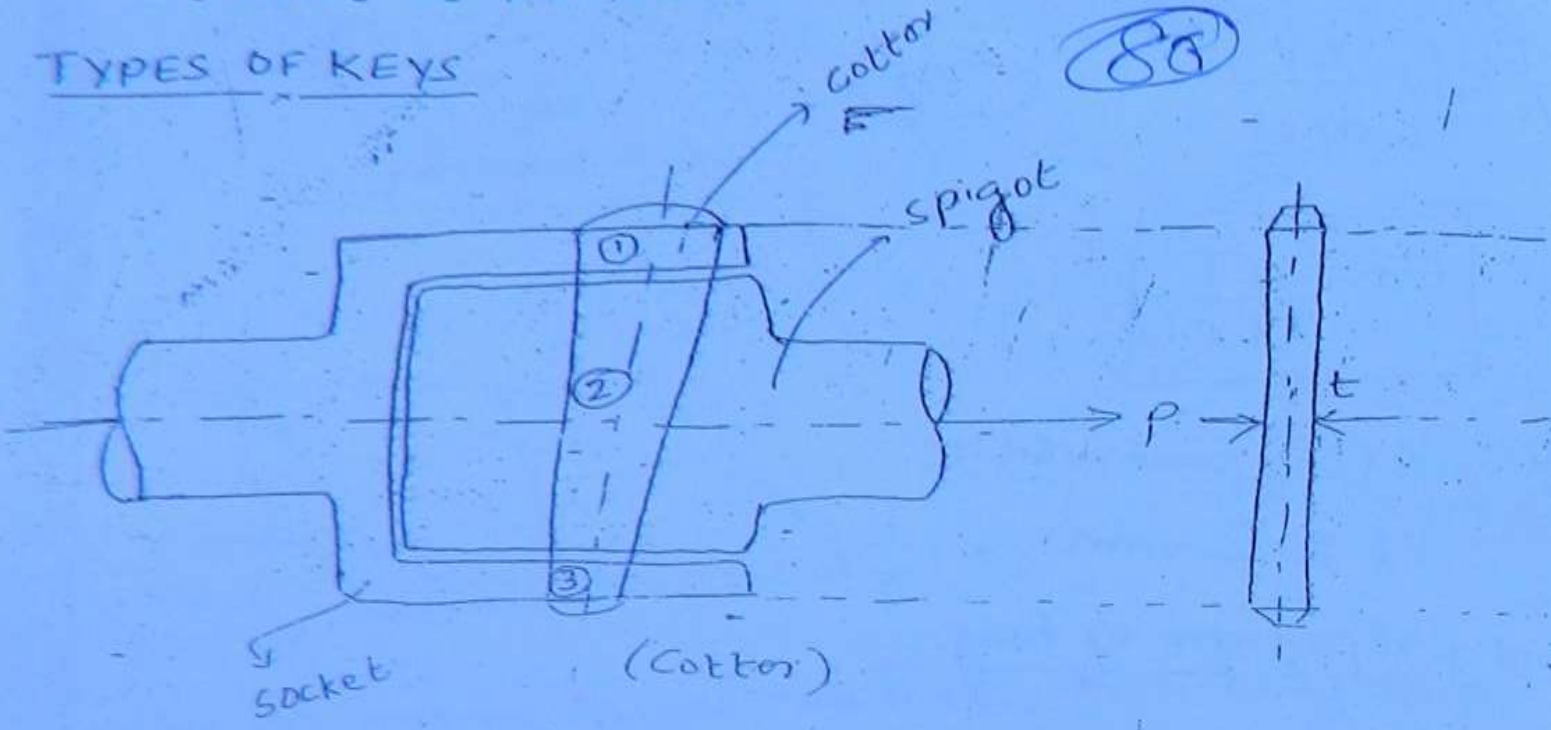 TYPES OF KEYS
cotter
spigot
①
②
③
P
t
socket
(Cotter)